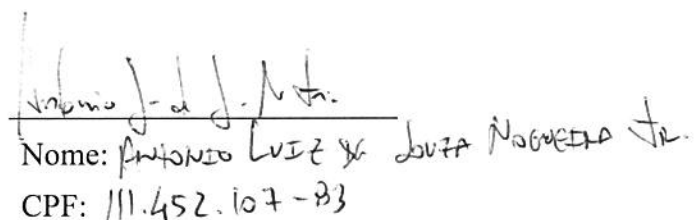 Antonio L. de S. N Jr.
Nome: ANTONIO LUIZ DE SOUZA NOGUEIRA JR.
CPF: 111.452.107-83